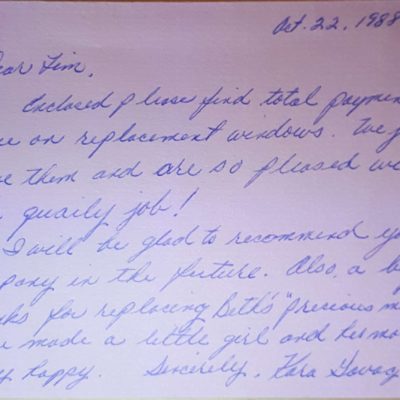 Oct. 22, 1988
ear Jim,
Enclosed please find total paymen
e on replacement windows. We j
e them and are so pleased w
quaily job!
I will be glad to recommend yo
pany in the future. Also, a b
ks for replacing Beth's "precious m
e made a little girl and her mo
y happy. Sincerely, Kara